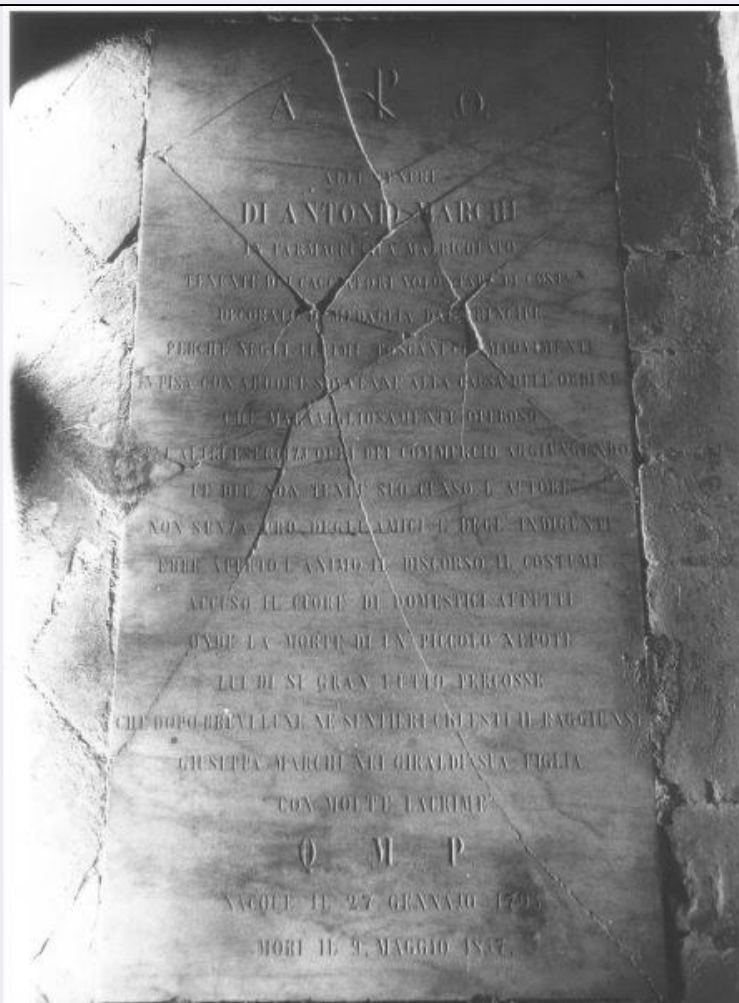 A ☧ Ω
ALLE CENERI
DI ANTONIO MARCHI
IN FARMACEUTICA MATRICOLATO
TENENTE DEI CACCIATORI VOLONTARI DI COSTA
DECORATO DI MEDAGLIA DAL PRINCIPE
PERCHE NEGLI ULTIMI TOSCANI COMMOVIMENTI
IN PISA CON ALTRI
ALLA CAUSA DELL'ORDINE
CHE MARAVIGLIOSAMENTE OPEROSO
ALTRI ESERCIZI QUELLI DEL COMMERCIO AGGIUNGENDO
LE DUE NON TENUE SUO CENSO E AUTORE
NON SENZA PRO DEGLI AMICI E DEGL' INDIGENTI
EBBE APERTO L'ANIMO IL DISCORSO IL COSTUME
ACCESO IL CUORE DI DOMESTICI AFFETTI
ONDE LA MORTE DI UN PICCOLO NEPOTE
LUI DI SI GRAN LUTTO PERCOSSE
CHE DOPO BREVI LUNE NE SENTIERI CELESTI IL RAGGIUNSE
GIUSEPPA MARCHI NEI GIRALDI SUA FIGLIA
CON MOLTE LACRIME
Q M P
NACQUE IL 27 GENNAJO
MORI IL 9. MAGGIO 1857.